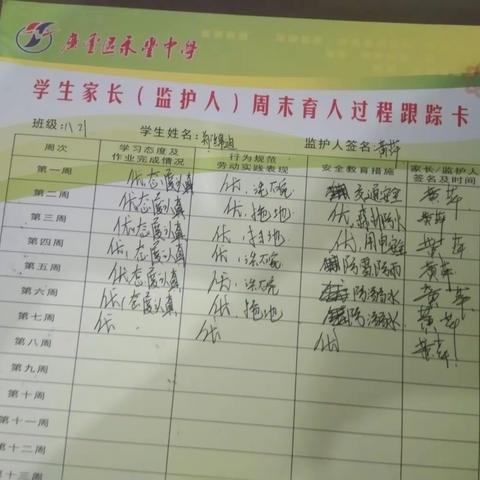 广安区永丰中学
学生家长（监护人）周末育人过程跟踪卡
班级:八.21 学生姓名: 监护人签名:黄萍
周次 学习态度及作业完成情况 行为规范劳动实践表现 安全教育措施 家长/监护人签名及时间
第一周 优态度认真 优、洗碗 交通安全 黄萍
第二周 优态度认真 优、拖地 优, 防水 黄萍
第三周 优,态度认真 优、扫地 优,用电安全 黄萍
第四周 优,态度认真 优、洗碗 防雷防雨 黄萍
第五周 优态度认真 优、洗碗 防溺水 黄萍
第六周 优,态度认真 优、拖地 防溺水 黄萍
第七周 优 优 优 黄萍
第八周
第九周
第十周
第十一周
第十二周
第十三周